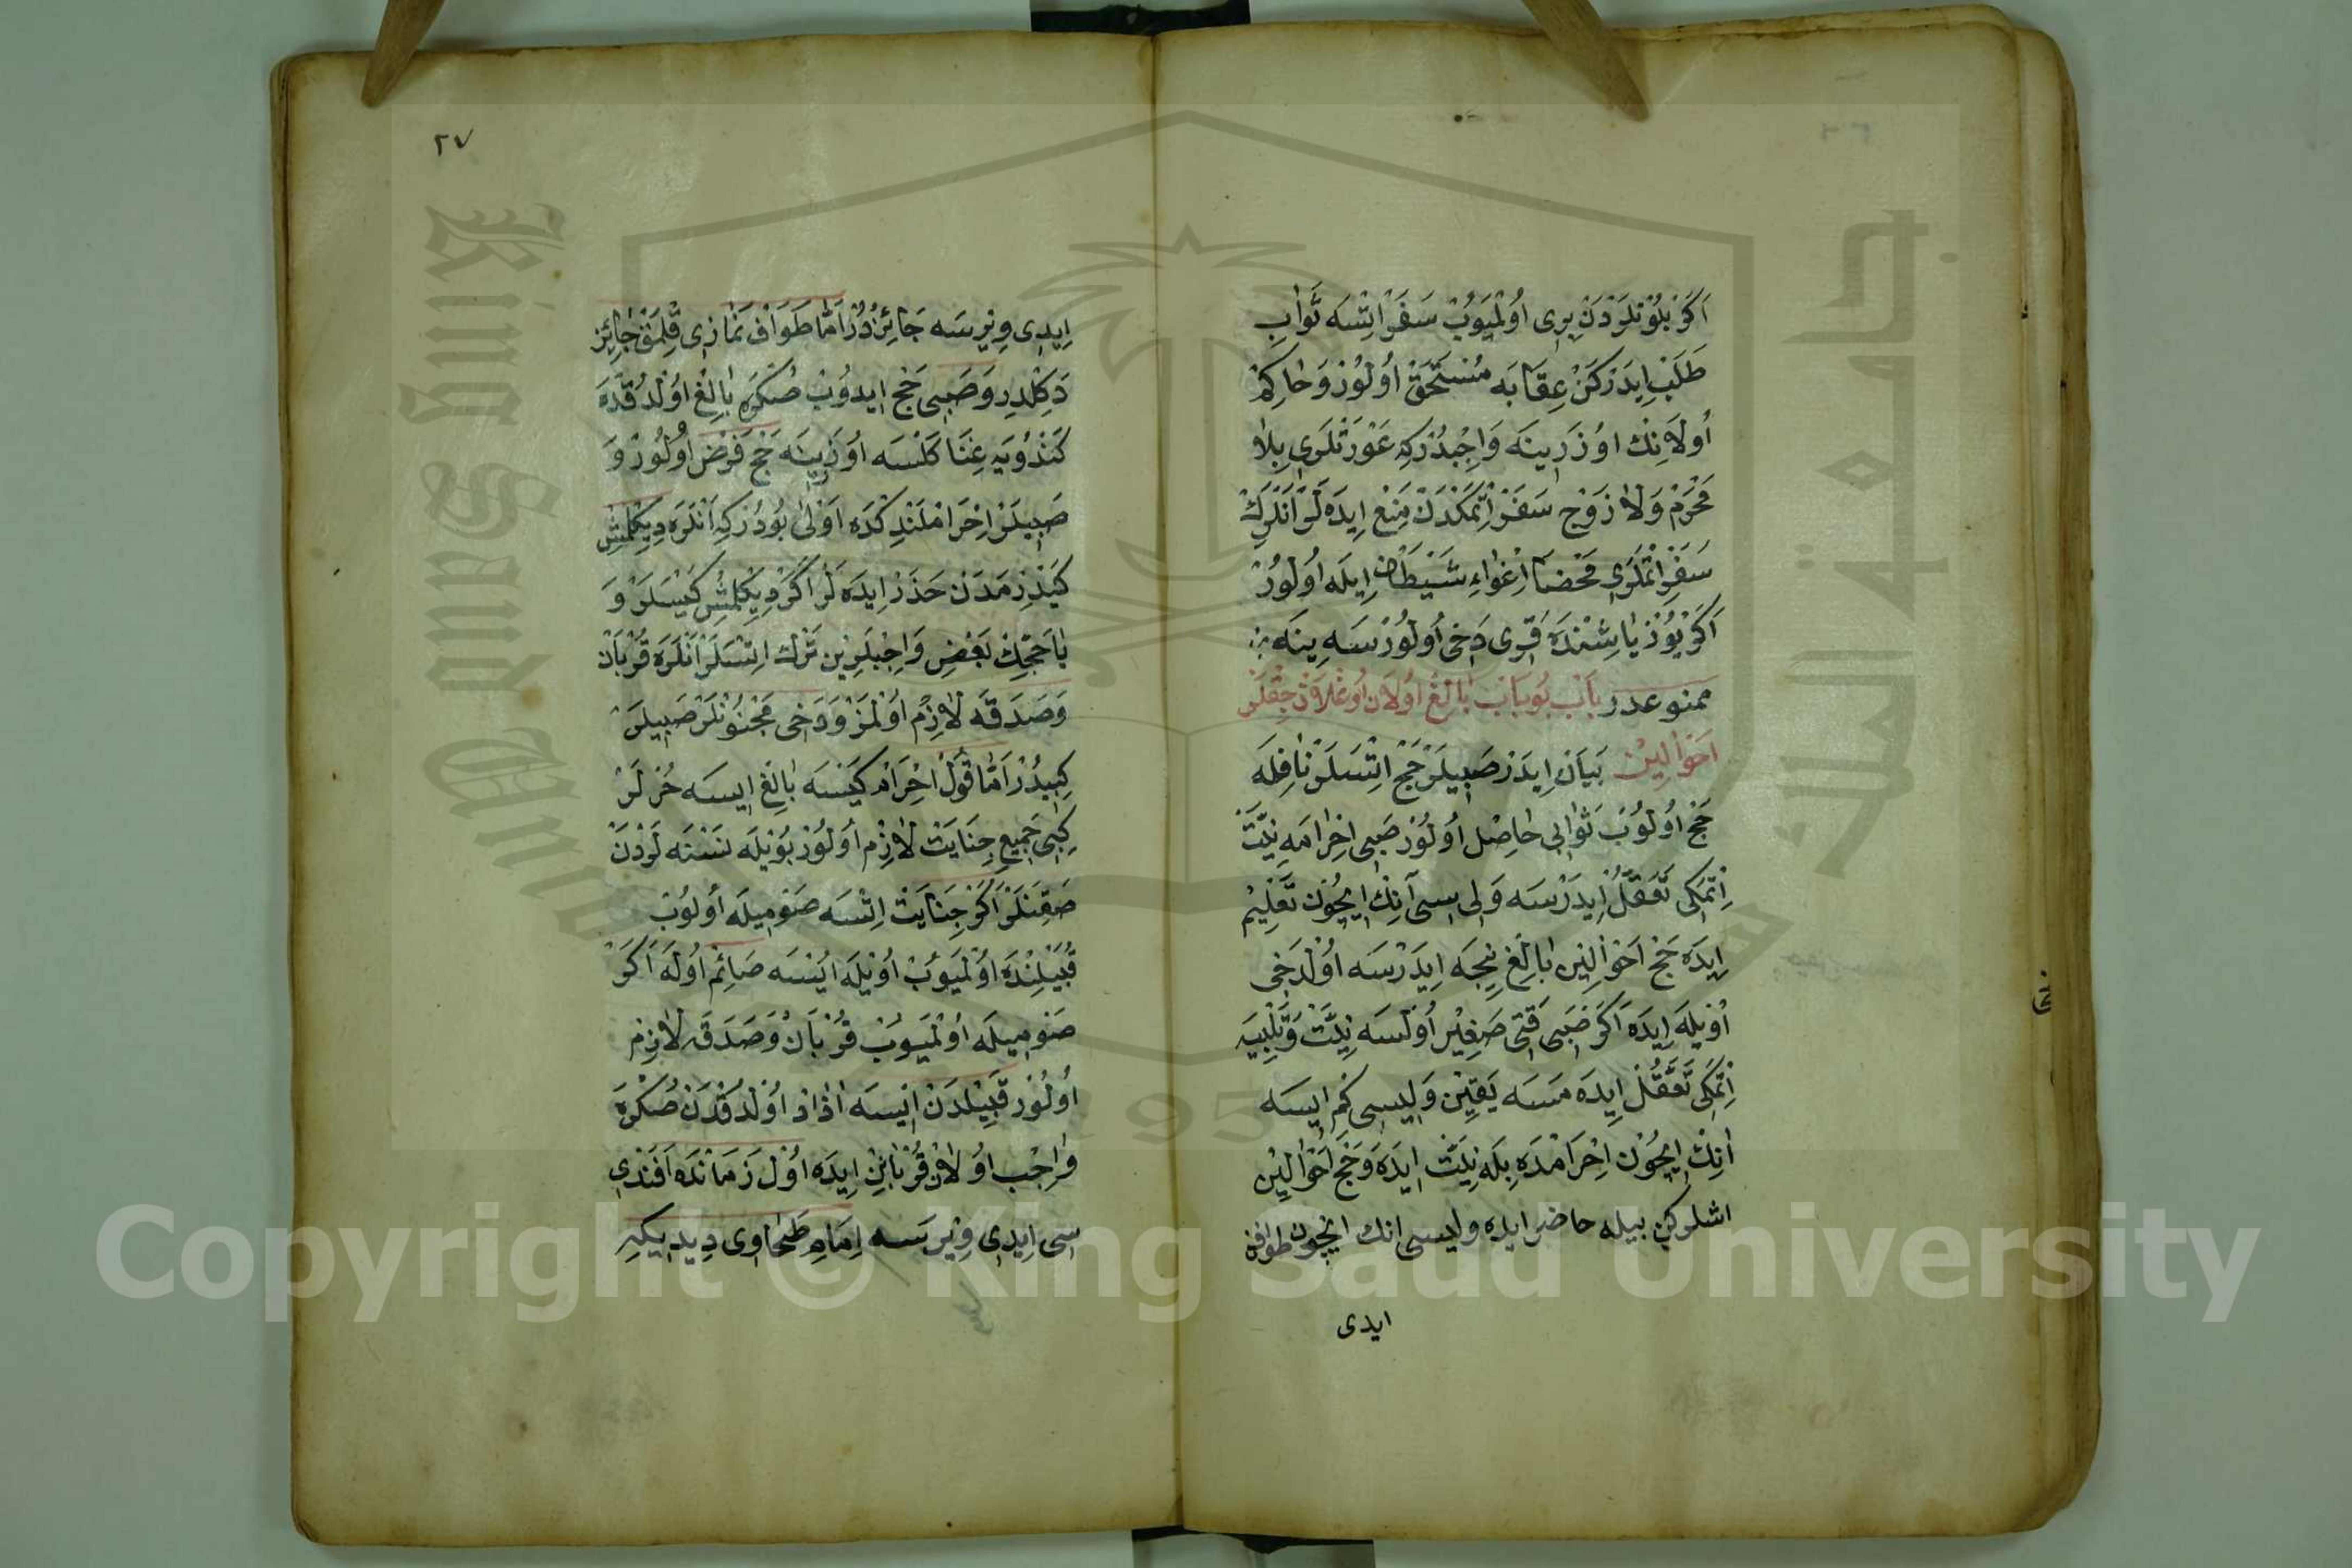 اَكَرْ بُلُوْنلَرْدَنْ بِرِى اُوْلْمَيُوبْ سَفَرْ اِتْسَه ثَوَابْ
طَلَبْ اِيدَرْكَنْ عِقَابَه مُسْتَحَقْ اُولُورْ وَحَاكِمْ
اُولَانِنْك اوُزَرِينَه وَاجِبْدُرْكِه عَوْرَتْلَرِى بِلاَ
مَحْرَمْ وَلاَ زَوْج سَفَرْ اِتْمَكْدَنْ مَنْعْ اِيدَه لَرْ اَنْلَرِكْ
سَفَرْ اِتْمَلَرِى مَحْضَا اِغْوَاءِ شَيْطَانْ اِيلَه اُولُورْ
اَكَرْ يُوزْ يَاشِنْدَه قَرِى دَخِى اُولُورْسَه يِنَه
ممنوعدر بَابْ بُوبَابْ بَالِغْ اُولاَنْ اُوغْلاَنْجِقْلَرْ
اَحْوَالِينْ بَيَانْ اِيدَرْ صَبِيلَرْ حَجْ اِتْسَلَرْ نَافِلَه
حَجْ اُولُوبْ ثَوَابِى حَاصِلْ اُولُورْ صَبِى اِحْرَامَه نِيَّتْ
اِتْمَكِى تَعَقُّلْ اِيدَرْسَه وَلِى سِى آنِكْ اِيچُونْ تَعْلِيمْ
اِيدَه حَجْ اَحْوَالِنِ بَالِغْ نِيجَه اِيدَرْسَه اُولْدَخِى
اُوْيلَه اِيدَه اَكَرْ صَبِى قَتِى صَغِيْر اُولْسَه نِيَّتْ وَتَلْبِيَه
اِتْمَكِى تَعَقُّلْ اِيدَه مَسَه يَقِيْن وَلِيسِى كِمْ اِيسَه
اَنِكْ اِيچُونْ اِحْرَامْدَه بِلَه نِيَّتْ اِيدَه وَحَجْ اَحْوَالِيْن
اشلركن بيله حاضر ايده وليسى انك ايچون طوافن
ايدى
٢٧
اِيدِى وِيْرِسَه جَائِزْدُرْ اَمَّا طَوَافْ نَمَازِى قِلْمَقْ جَائِزْ
دَكِلْدِر وَصَبِى حَجْ اِيدوُبْ صُكْرَه بَالِغْ اوُلْدُقْدَه
كَنْدُويَه غِنَا كَلْسَه اوُزَرِينَه حَجْ فَرْضْ اُولُورْ وَ
صَبِيلَرْ اِحْرَامْلَنْدِكْدَه اَوْلىٰ بُودُرْكِه اَنْلَرَه دِيكِلْمِشْ
كَيْدِرْمَدَنْ حَذَرْ اِيدَه لَرْ اَكَرْ دِيكِلْمِشْ كَيْسَلَرْ وَ
يَا حَجِّكْ بَعْضِ وَاجِبْلَرِينِ تَرْك اِتْسَلَرْ اَنْلَرَه قُرْبَانْ
وَصَدَقَه لاَزِمْ اوُلْمَزْ وَدَخِى مَجْنُونْلَرْ صَبِيلَرْ
كِبِيدُرْ اَمَّا قُولْ اِحْرَامْ كَيْسَه بَالِغْ اِيسَه حُرْلَرْ
كِبِى جَمِيعِ جِنَايَتْ لاَزِمْ اُولُورْ بُويْلَه نَسْنَه لَرْدَنْ
صَقِنَلَرْ اَكَرْ جِنَايَتْ اِتْسَه صَوْمِيلَه اُولُوبْ
قُبَيْلِنْدَه اوُلْمَيُوبْ اوُيْلَه اِيْسَه صَائِمْ اوُلَه اَكَرْ
صَوْمِيلَه اُوْلْمَيُوبْ قُرْبَانْ وَصَدَقَه لاَزِمْ
اُولُورْ قَبِيلْدَنْ اِيسَه اٰزَادْ اوُلْدُقْدَنْ صُكْرَه
وَاجِبْ اوُلاَنْ قُرْبَانِنْ اِيدَه اوُلْ زَمَانْدَه اَفَنْدِى
سِى اِيدِى وِيْرِسَه اِمَامِ طَحَاوِى دِيدِيكِه
Copyright © King Saud University